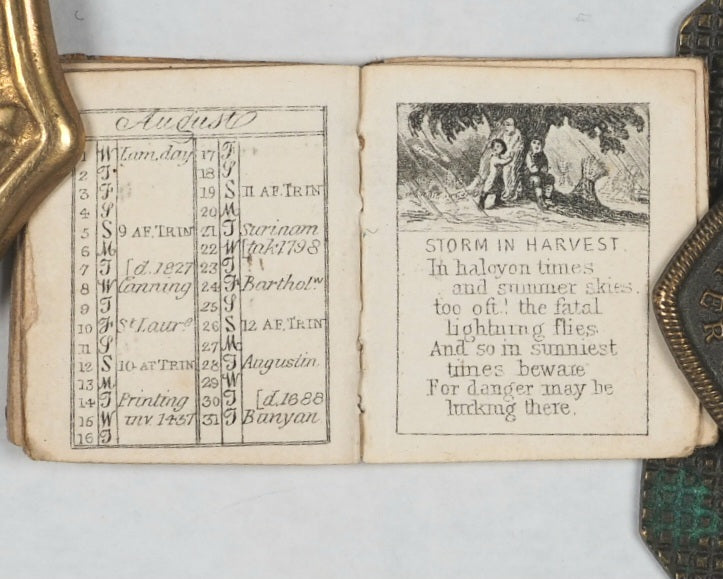 August
1 W Lam. day
2 T
3 F
4 S
5 S 9 AF. TRIN
6 M
7 T [d. 1827
8 W Canning
9 T
10 F St Laurce
11 S
12 S 10 AF TRIN
13 M
14 T Printing
15 W inv. 1437
16 T
17 F
18 S
19 S 11 AF. TRIN
20 M
21 T Surinam
22 W [tak 1798
23 T
24 F Bartholw
25 S
26 S 12 AF. TRIN
27 M
28 T Augustin
29 W
30 T [d. 1688
31 F Bunyan
STORM IN HARVEST.
In halcyon times
and summer skies,
too oft! the fatal
lightning flies.
And so in sunniest
times beware
For danger may be
lurking there.